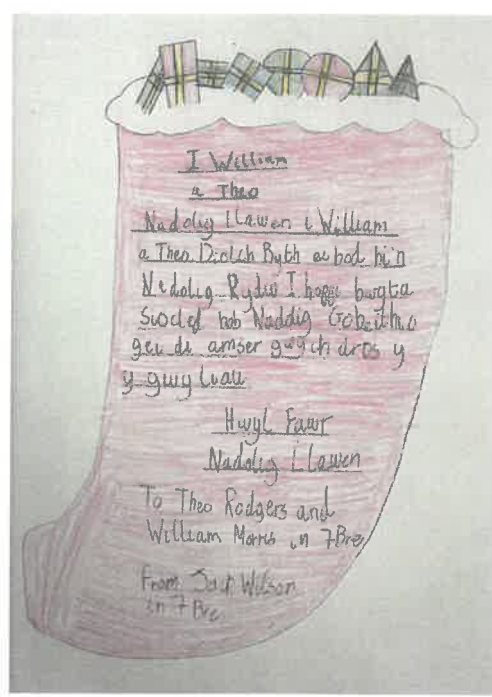 I William
a Theo
Naddlig Llawen i William
a Theo Diolch Byth ei bod hi'n
Nedolig Rydw I hoffi bwyta
Siocled bob Naddlig Gobeithio
gei di amser gwych dros y
y gwyliau
Hwyl Fawr
Naddlig Llawen
To Theo Rodgers and
William Morris in 7Bre
From Jack Wilson
in 7 Bre